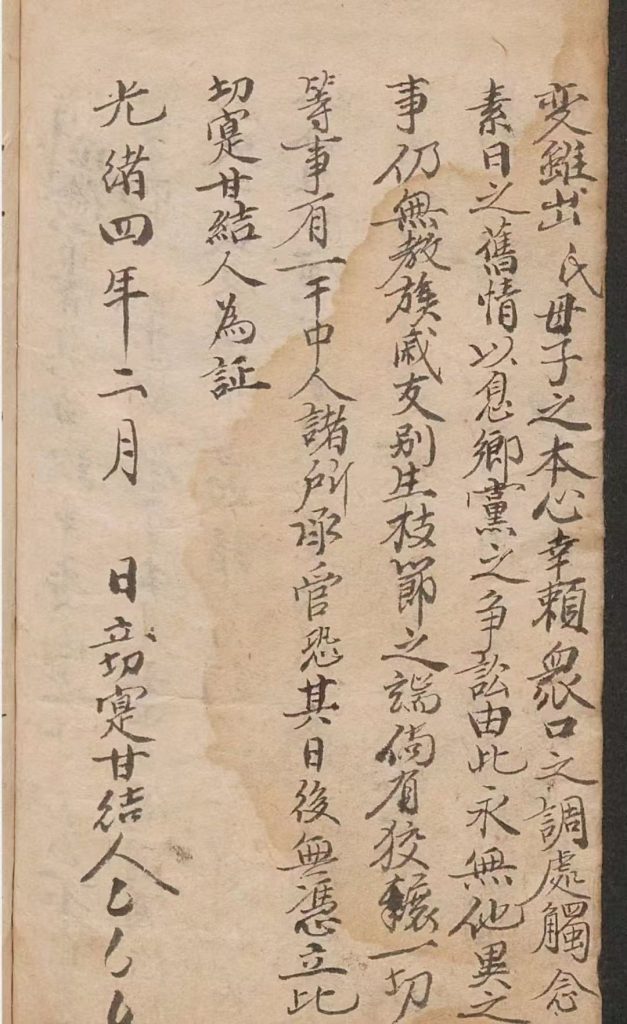 变雖出氏母子之本心幸賴衆口之調處觸念
素日之舊情以息鄉黨之争訟由此永無他異之
事仍無教族戚友别生枝節之端倘有狡轅一切
等事有一干中人諸所承管恐其日後無憑立此
切寔甘結人為証
光緒四年二月 日立切寔甘結人